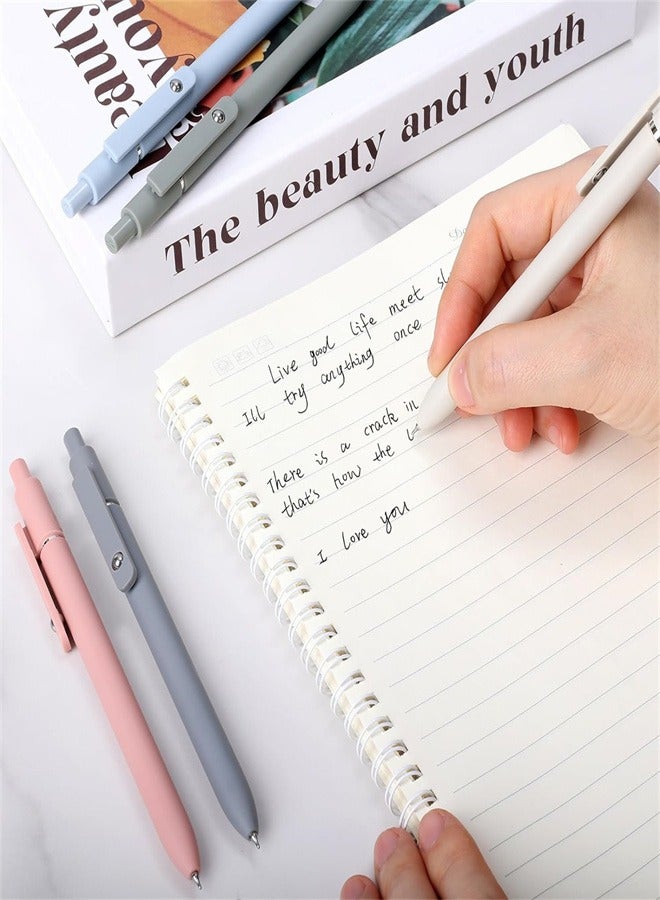 beauty
you
The beauty and youth
Live good life meet
Ill try anything once
There is a crack in
that's how the
I love you